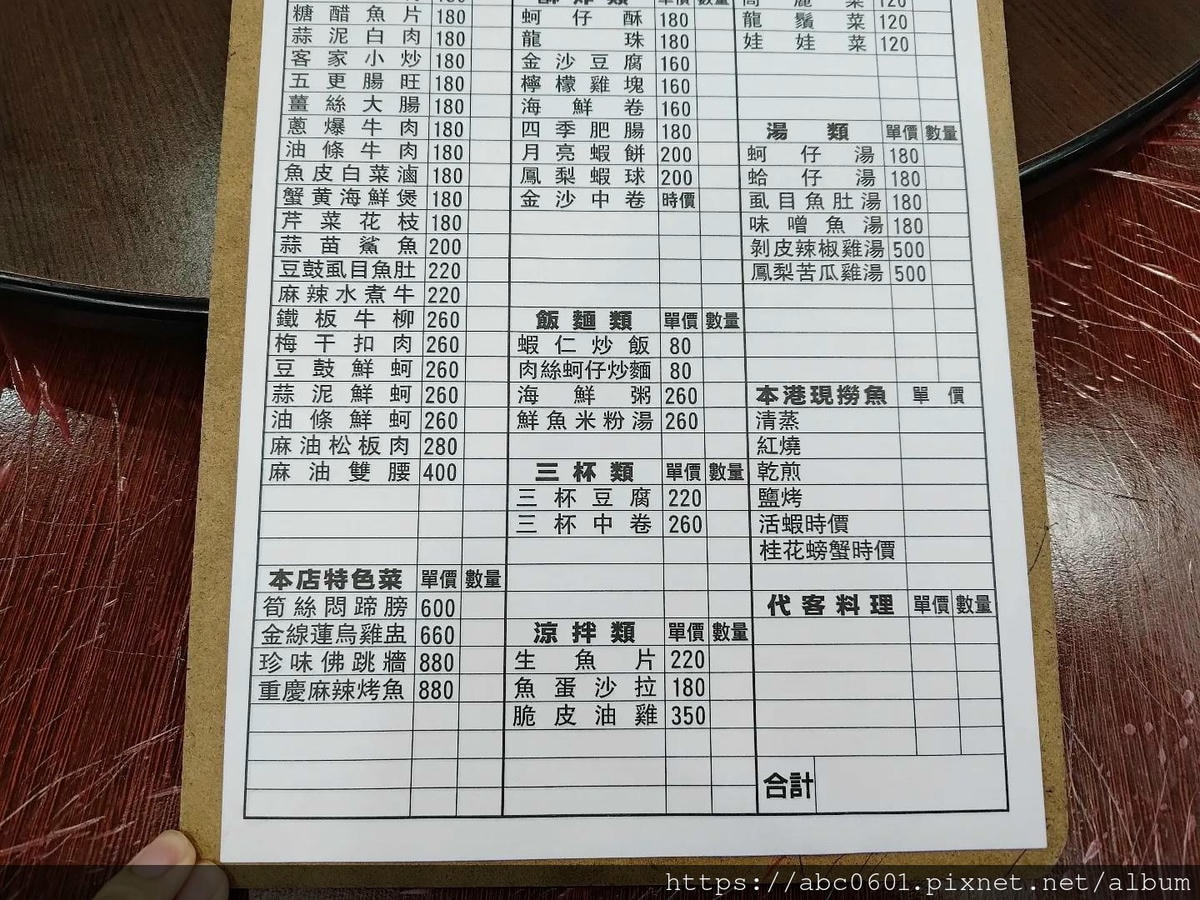 180
糖醋魚片 180
蒜泥白肉 180
客家小炒 180
五更腸旺 180
薑絲大腸 180
蔥爆牛肉 180
油條牛肉 180
魚皮白菜滷 180
蟹黃海鮮煲 180
芹菜花枝 180
蒜苗鯊魚 200
豆鼓虱目魚肚 220
麻辣水煮牛 220
鐵板牛柳 260
梅干扣肉 260
豆鼓鮮蚵 260
蒜泥鮮蚵 260
油條鮮蚵 260
麻油松板肉 280
麻油雙腰 400
本店特色菜 單價 數量
筍絲悶蹄膀 600
金線蓮烏雞盅 660
珍味佛跳牆 880
重慶麻辣烤魚 880
酥炸類 單價 數量
蚵仔酥 180
龍珠 180
金沙豆腐 160
檸檬雞塊 160
海鮮卷 160
四季肥腸 180
月亮蝦餅 200
鳳梨蝦球 200
金沙中卷 時價
飯麵類 單價 數量
蝦仁炒飯 80
肉絲蚵仔炒麵 80
海鮮粥 260
鮮魚米粉湯 260
三杯類 單價 數量
三杯豆腐 220
三杯中卷 260
涼拌類 單價 數量
生魚片 220
魚蛋沙拉 180
脆皮油雞 350
高麗菜 120
龍鬚菜 120
娃娃菜 120
湯類 單價 數量
蚵仔湯 180
蛤仔湯 180
虱目魚肚湯 180
味噌魚湯 180
剝皮辣椒雞湯 500
鳳梨苦瓜雞湯 500
本港現撈魚 單價
清蒸
紅燒
乾煎
鹽烤
活蝦時價
桂花螃蟹時價
代客料理 單價 數量
合計
https://abc0601.pixnet.net/album